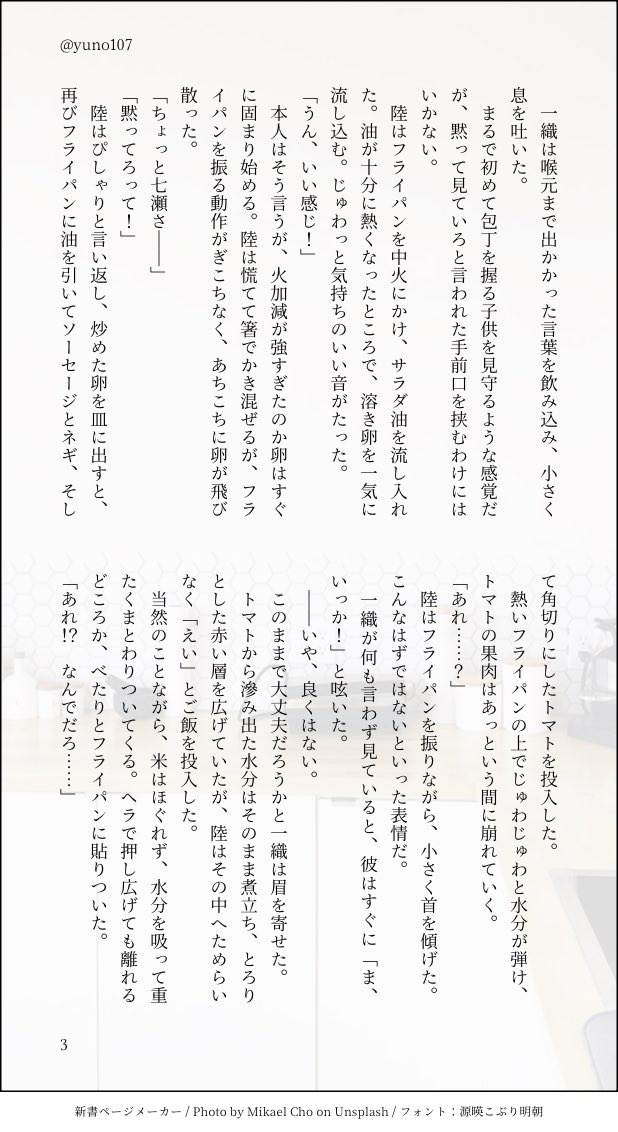 @yuno107
　一織は喉元まで出かかった言葉を飲み込み、小さく
息を吐いた。
　まるで初めて包丁を握る子供を見守るような感覚だ
が、黙って見ていろと言われた手前口を挟むわけには
いかない。
　陸はフライパンを中火にかけ、サラダ油を流し入れ
た。油が十分に熱くなったところで、溶き卵を一気に
流し込む。じゅわっと気持ちのいい音がたった。
「うん、いい感じ！」
　本人はそう言うが、火加減が強すぎたのか卵はすぐ
に固まり始める。陸は慌てて箸でかき混ぜるが、フラ
イパンを振る動作がぎこちなく、あちこちに卵が飛び
散った。
「ちょっと七瀬さ――」
「黙ってろって！」
　陸はぴしゃりと言い返し、炒めた卵を皿に出すと、
再びフライパンに油を引いてソーセージとネギ、そし
て角切りにしたトマトを投入した。
　熱いフライパンの上でじゅわじゅわと水分が弾け、
トマトの果肉はあっという間に崩れていく。
「あれ……？」
　陸はフライパンを振りながら、小さく首を傾げた。
こんなはずではないといった表情だ。
　一織が何も言わず見ていると、彼はすぐに「ま、
いっか！」と呟いた。
　――いや、良くはない。
　このままで大丈夫だろうかと一織は眉を寄せた。
　トマトから滲み出た水分はそのまま煮立ち、とろり
とした赤い層を広げていたが、陸はその中へためらい
なく「えい」とご飯を投入した。
　当然のことながら、米はほぐれず、水分を吸って重
たくまとわりついてくる。ヘラで押し広げても離れる
どころか、べたりとフライパンに貼りついた。
「あれ!?　なんでだろ……」
3
新書ページメーカー / Photo by Mikael Cho on Unsplash / フォント：源暎こぶり明朝